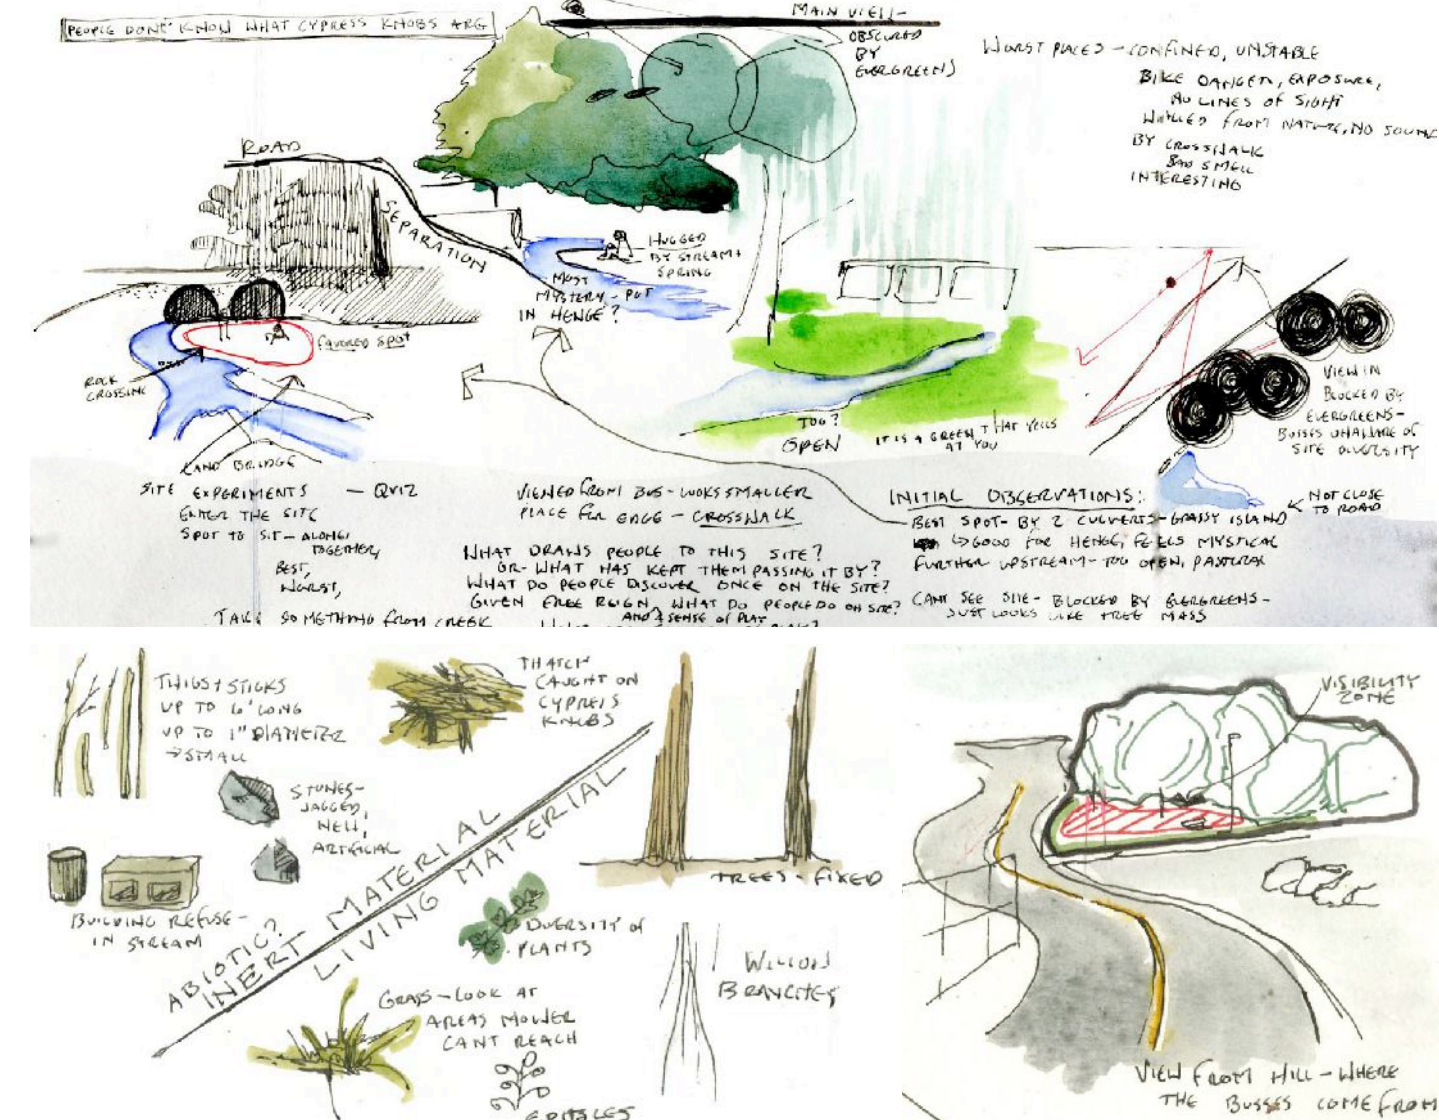 PEOPLE DONT KNOW WHAT CYPRESS KNOBS ARE
MAIN VIEW -
OBSCURED
BY
EVERGREENS
WORST PLACES - CONFINED, UNSTABLE
BIKE DANGER, EXPOSURE,
NO LINES OF SIGHT
WALLED FROM NATURE, NO SOUND
BY CROSSWALK
BAD SMELL
INTERESTING
ROAD
SEPARATION
HUGGED
BY STREAM +
SPRING
MOST
MYSTERY - PUT
IN HENGE?
FAVORED SPOT
ROCK
CROSSING
LAND BRIDGE
TOO?
OPEN
IT IS A GREEN THAT YELLS
AT YOU
VIEW IN
BLOCKED BY
EVERGREENS -
BUSSES UNAWARE OF
SITE DIVERSITY
NOT CLOSE
TO ROAD
SITE EXPERIMENTS - QUIZ
ENTER THE SITE
SPOT TO SIT - ALONE,
TOGETHER,
BEST,
WORST,
TAKE SOMETHING FROM CREEK
VIEWED FROM BUS - LOOKS SMALLER
PLACE FOR EDGE - CROSSWALK
WHAT DRAWS PEOPLE TO THIS SITE?
OR - WHAT HAS KEPT THEM PASSING IT BY?
WHAT DO PEOPLE DISCOVER ONCE ON THE SITE?
GIVEN FREE REIGN, WHAT DO PEOPLE DO ON SITE?
AND A SENSE OF PLAY
INITIAL OBSERVATIONS:
- BEST SPOT - BY 2 CULVERTS - GRASSY ISLAND
GOOD FOR HENGE, FEELS MYSTICAL
FURTHER UPSTREAM - TOO OPEN, PASTORAL
CANT SEE SITE - BLOCKED BY EVERGREENS -
JUST LOOKS LIKE TREE MASS
TWIGS + STICKS
UP TO 6' LONG
UP TO 1" DIAMETER
→ SMALL
THATCH
CAUGHT ON
CYPRESS
KNOBS
STONES -
JAGGED,
NEW,
ARTIFICIAL
BUILDING REFUSE -
IN STREAM
ABIOTIC?
INERT MATERIAL
LIVING MATERIAL
TREES - FIXED
DIVERSITY OF
PLANTS
WILLOW
BRANCHES
GRASS - LOOK AT
AREAS MOWER
CANT REACH
EDIBLES
VISIBILITY
ZONE
VIEW FROM HILL - WHERE
THE BUSSES COME FROM